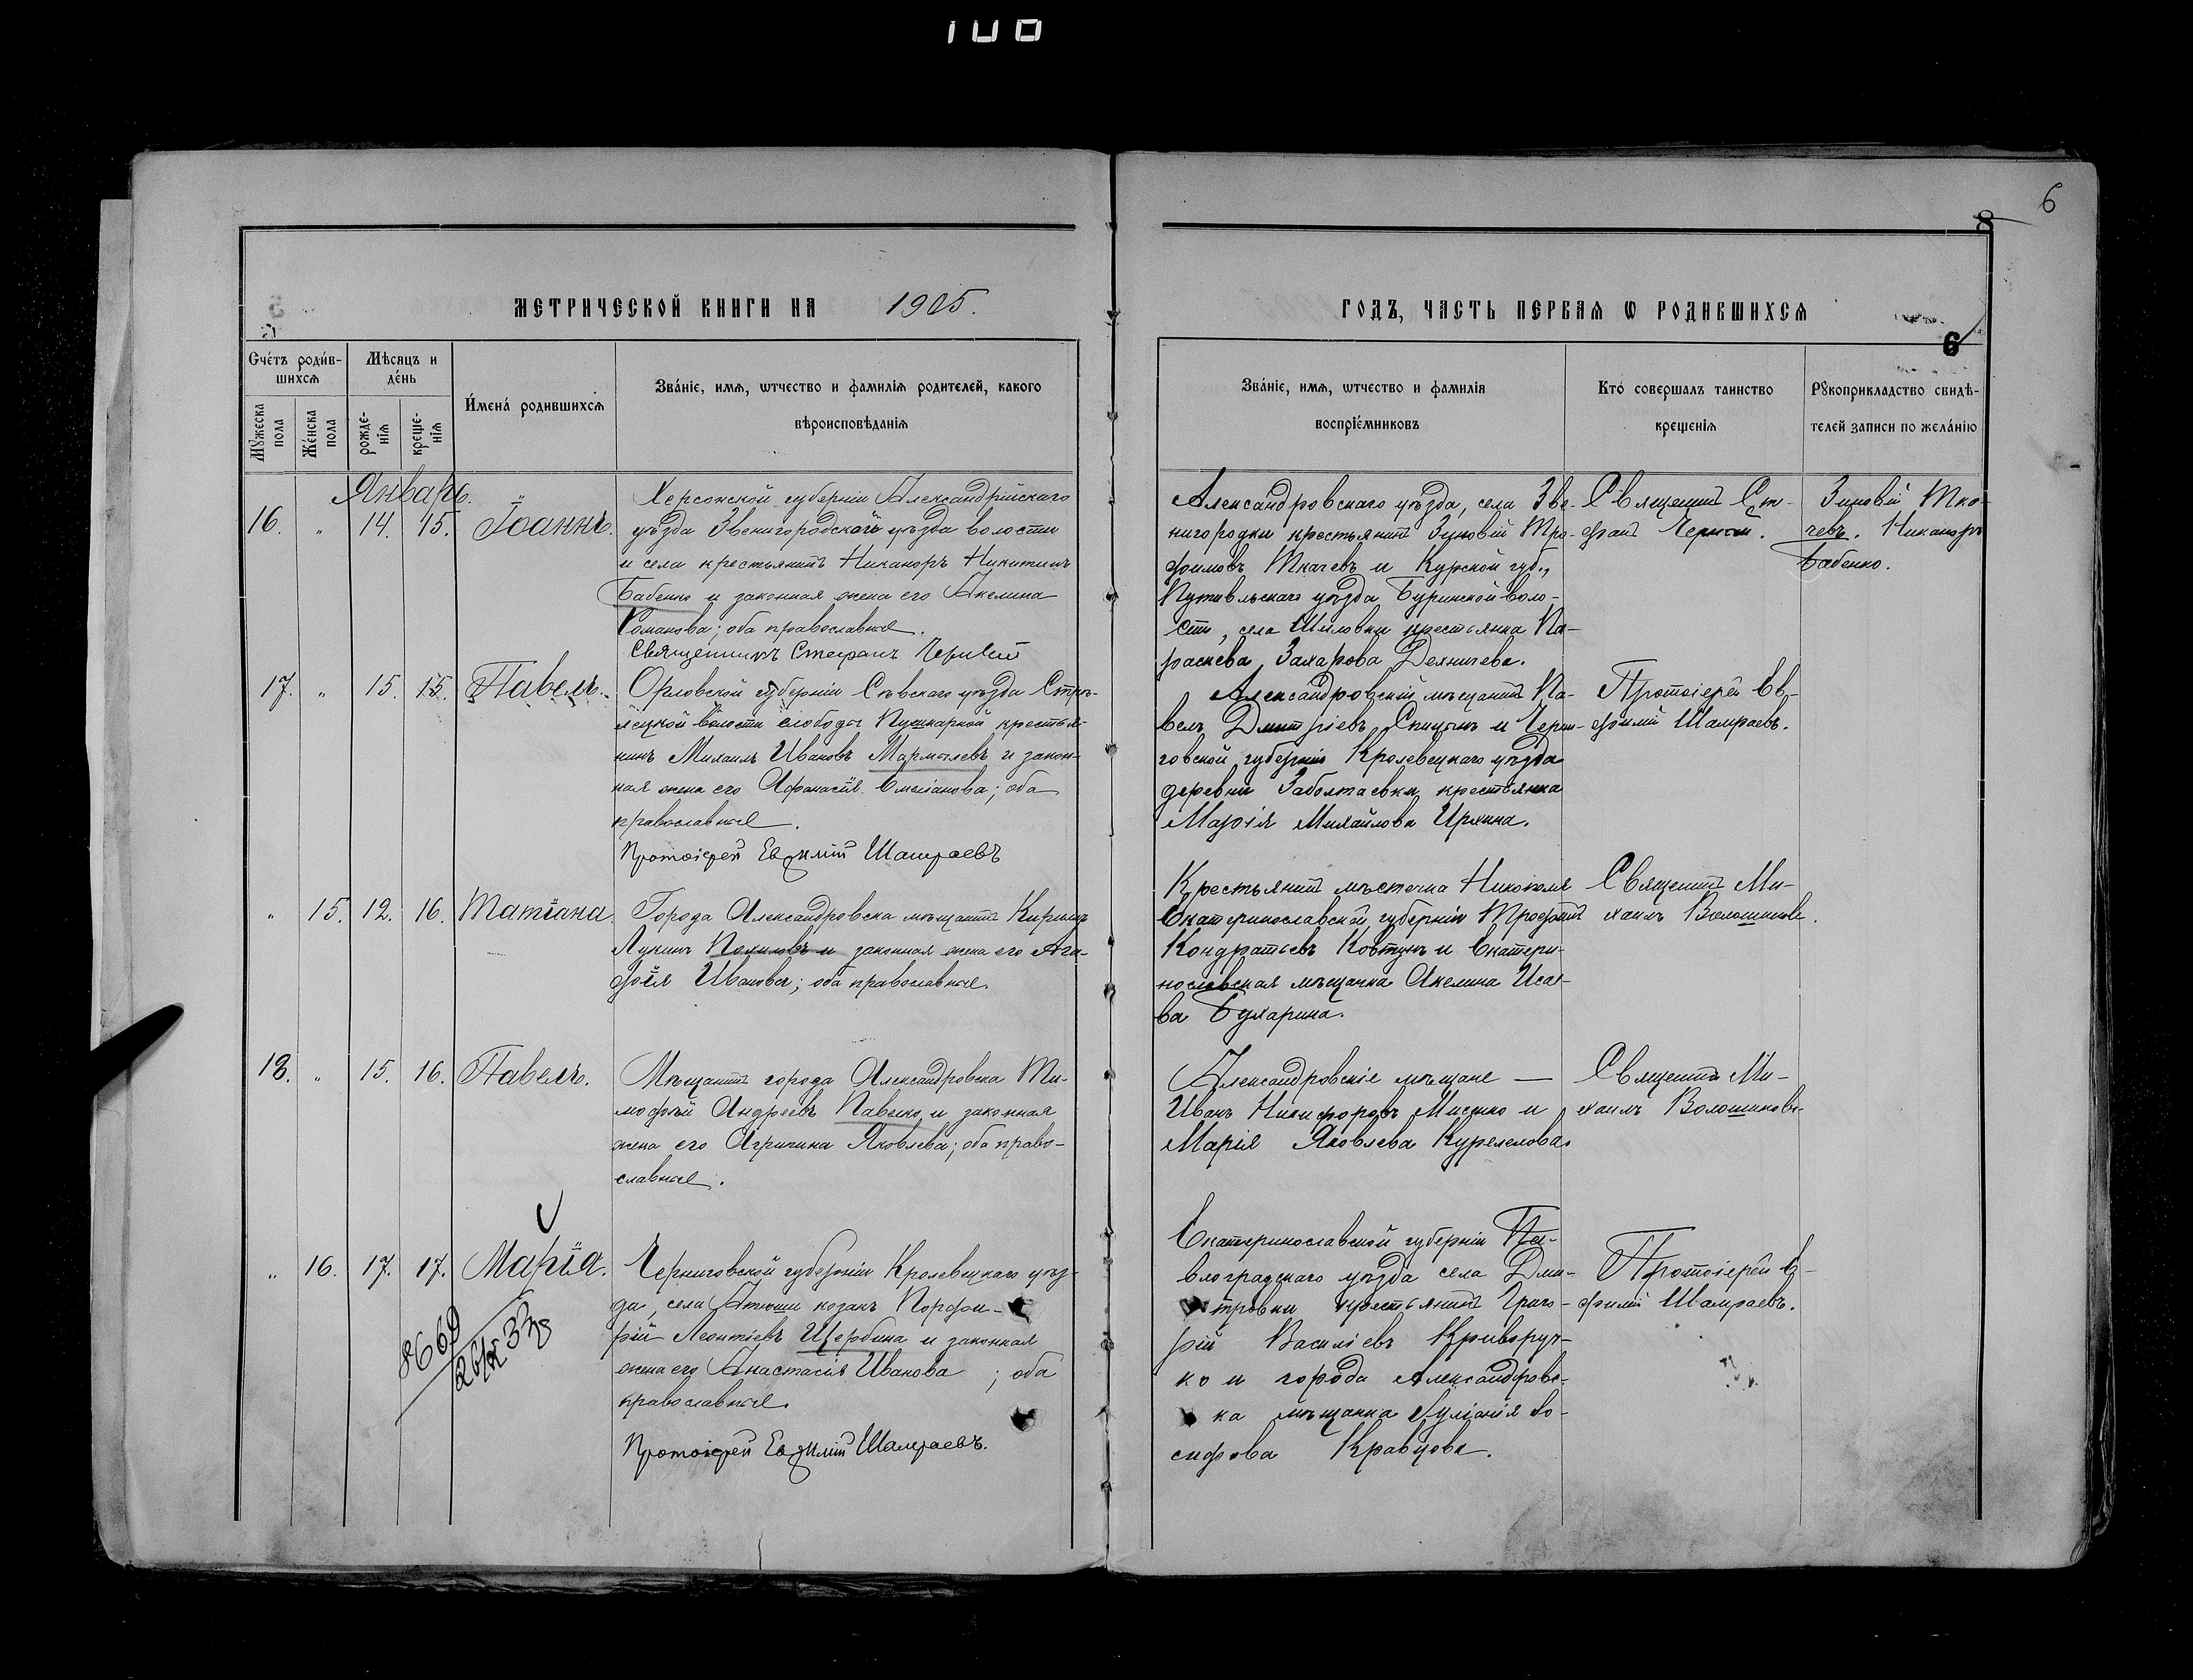 100
6
8
МЕТРИЧЕСКОЙ КНИГИ НА 1905.
ГОДЪ, ЧАСТЬ ПЕРВАѦ Ѡ РОДИВШИХСѦ
6
Счетъ родив-
шихсѧ
Мѣсяцъ и
день
Имена родившихсѧ
Званіе, имѧ, ѡтчество и фамиліѧ родителей, какого
вѣроисповѣданіѧ
Мꙋжеска
пола
Женска
пола
рожде-
ніѧ
креще-
ніѧ
Званіе, имѧ, ѡтчество и фамиліѧ
воспріемниковъ
Кто совершалъ таинство
крещеніѧ
Рꙋкоприкладство свидѣ-
телей записи по желанію
Январь.
16. " 14. 15. Іоаннъ.
Херсонской губерніи Александрійскаго
уѣзда Звенигородской волости
и села крестьянинъ Никаноръ Никитинъ
Бабенко и законная жена его Акелина
Романова; оба православные.
Священникъ Стефанъ
Александровскаго уѣзда, села Зве-
нигородки крестьянинъ Зиновій Тро-
фимовъ Ткачевъ и Курской губ.,
Путивльскаго уѣзда Буринской воло-
сти, села крестьянка Па-
раскева Захарова
Священникъ Сте-
фанъ
Зиновій Тка-
чевъ. Никаноръ
Бабенко.
17. " 15. 15. Павелъ.
Орловской губерніи Сѣвскаго уѣзда Стрѣ-
лецкой волости слободы Пушкарной крестья-
нинъ Михаилъ Ивановъ и закон-
ная жена его Афанасія Емеліанова; оба
православные.
Протоіерей Евфимій Шамраевъ
Александровскій мѣщанинъ Па-
велъ Дмитріевъ Спицынъ и Черни-
говской губерніи Кролевецкаго уѣзда
деревни Заболтаевки крестьянка
Марія Михайлова
Протоіерей Ев-
фимій Шамраевъ.
" 15. 12. 16. Татіана.
Города Александровска мѣщанинъ Кириллъ
Лукинъ и законная жена его Ага-
фія Иванова; оба православные.
Крестьянинъ мѣстечка Никополя
Екатеринославской губерніи Трофимъ
Кондратьевъ Ковтунъ и Екатери-
нославская мѣщанка Акелина Исае-
ва Бухарина.
Священникъ Ми-
хаилъ Волошиновъ.
18. " 15. 16. Павелъ.
Мѣщанинъ города Александровска Ти-
мофей Андреевъ Павленко и законная
жена его Агрипина Яковлева; оба право-
славные.
Александровскіе мѣщане —
Иванъ Никифоровъ и
Марія Яковлева
Священникъ Ми-
хаилъ Волошиновъ.
" 16. 17. 17. Марія.
Черниговской губерніи Кролевецкаго уѣз-
да, села Атюши козакъ Порфи-
рій Леонтіевъ Щербина и законная
жена его Анастасія Иванова; оба
православные.
Протоіерей Евфимій Шамраевъ.
Екатеринославской губерніи Па-
влоградскаго уѣзда села Дми-
тровки крестьянинъ Григо-
рій Василіевъ Криворуч-
ко и города Александровс-
ка мѣщанка Іуліанія Іо-
сифова Кравцова.
Протоіерей Ев-
фимій Шамраевъ.